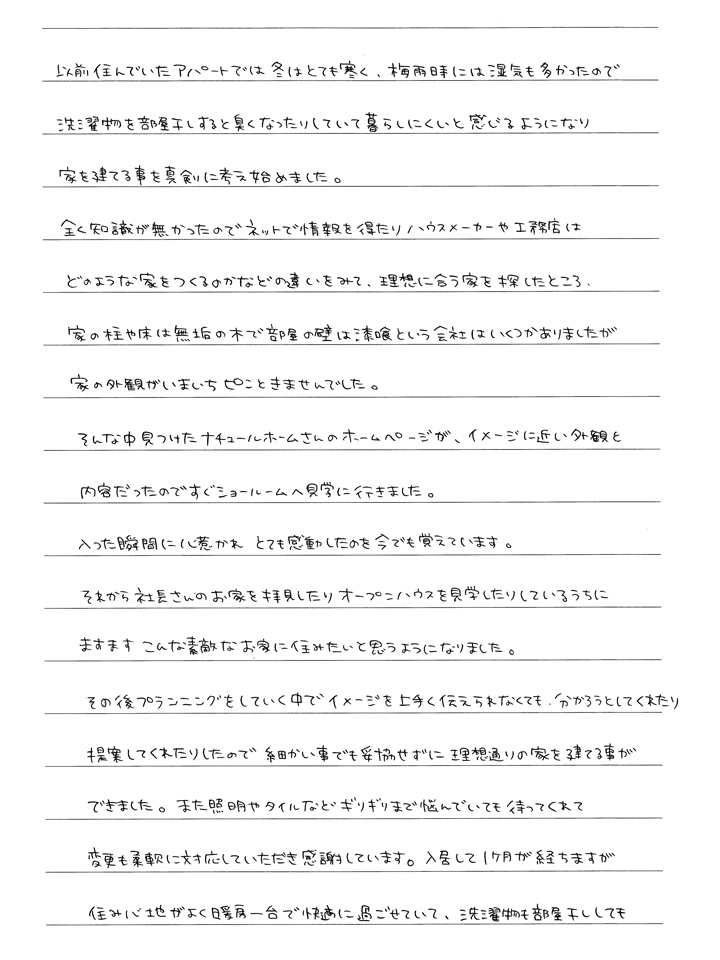 以前住んでいたアパートでは冬はとても寒く、梅雨時には湿気も多かったので
洗濯物を部屋干しすると臭くなったりしていて暮らしにくいと感じるようになり
家を建てる事を真剣に考え始めました。
全く知識が無かったのでネットで情報を得たりハウスメーカーや工務店は
どのような家をつくるのかなどの違いをみて、理想に合う家を探したところ、
家の柱や床は無垢の木で部屋の壁は漆喰という会社はいくつかありましたが
家の外観がいまいちピンときませんでした。
そんな中見つけたナチュールホームさんのホームページが、イメージに近い外観と
内容だったのですぐショールームへ見学に行きました。
入った瞬間に心惹かれ とても感動したのを今でも覚えています。
それから社長さんのお家を拝見したりオープンハウスを見学したりしているうちに
ますます こんな素敵なお家に住みたいと思うようになりました。
その後プランニングをしていく中でイメージを上手く伝えられなくても、分かろうとしてくれたり
提案してくれたりしたので 細かい事でも妥協せずに 理想通りの家を建てる事が
できました。また照明やタイルなどギリギリまで悩んでいても待ってくれて
変更も柔軟に対応していただき感謝しています。入居して1ヶ月が経ちますが
住み心地がよく暖房一台で快適に過ごせていて、洗濯物も部屋干ししても